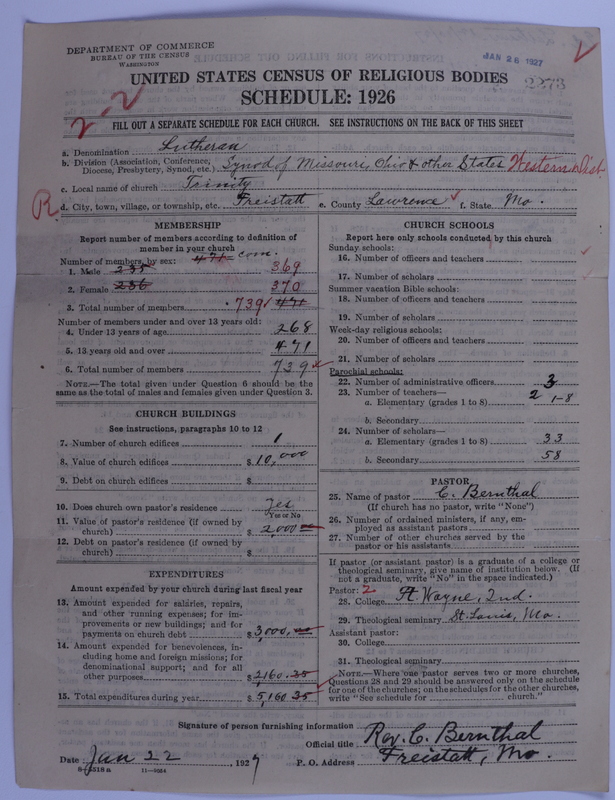 DEPARTMENT OF COMMERCE
BUREAU OF THE CENSUS
WASHINGTON
JAN 26 1927
2273
UNITED STATES CENSUS OF RELIGIOUS BODIES
SCHEDULE: 1926
2-2
FILL OUT A SEPARATE SCHEDULE FOR EACH CHURCH. SEE INSTRUCTIONS ON THE BACK OF THIS SHEET
a. Denomination Lutheran
b. Division (Association, Conference, Diocese, Presbytery, Synod, etc.) Synod of Missouri, Ohio & other States Western Dist
c. Local name of church Trinity
R
d. City, town, village, or township, etc. Freistatt e. County Lawrence f. State Mo.
MEMBERSHIP
Report number of members according to definition of
member in your church
Number of members, by sex: 471 com.
1. Male 235 369
2. Female 236 370
3. Total number of members 739 471
Number of members under and over 13 years old:
4. Under 13 years of age 268
5. 13 years old and over 471
6. Total number of members 739
NOTE.—The total given under Question 6 should be the
same as the total of males and females given under Question 3.
CHURCH BUILDINGS
See instructions, paragraphs 10 to 12
7. Number of church edifices 1
8. Value of church edifices $10,000
9. Debt on church edifices $
10. Does church own pastor's residence Yes
Yes or No
11. Value of pastor's residence (if owned by
church) $2000
12. Debt on pastor's residence (if owned by
church) $
EXPENDITURES
Amount expended by your church during last fiscal year
13. Amount expended for salaries, repairs,
and other running expenses; for im-
provements or new buildings; and for
payments on church debt $3,000.
14. Amount expended for benevolences, in-
cluding home and foreign missions; for
denominational support; and for all
other purposes $2160.35
15. Total expenditures during year $5,160 35
CHURCH SCHOOLS
Report here only schools conducted by this church
Sunday schools:
16. Number of officers and teachers
17. Number of scholars
Summer vacation Bible schools:
18. Number of officers and teachers
19. Number of scholars
Week-day religious schools:
20. Number of officers and teachers
21. Number of scholars
Parochial schools:
22. Number of administrative officers 3
23. Number of teachers—
a. Elementary (grades 1 to 8) 2 1-8
b. Secondary
24. Number of scholars—
a. Elementary (grades 1 to 8) 33
b. Secondary 58
PASTOR
25. Name of pastor C. Bernthal
(If church has no pastor, write "None")
26. Number of ordained ministers, if any, em-
ployed as assistant pastors
27. Number of other churches served by the
pastor or his assistants
If pastor (or assistant pastor) is a graduate of a college or
theological seminary, give name of institution below. (If
not a graduate, write "No" in the space indicated.)
Pastor: 2
28. College Ft. Wayne, Ind.
29. Theological seminary St. Louis, Mo.
Assistant pastor:
30. College
31. Theological seminary
NOTE.—Where one pastor serves two or more churches,
Questions 28 and 29 should be answered only on the schedule
for one of the churches; on the schedules for the other churches,
write "See schedule for church."
Signature of person furnishing information Rev. C. Bernthal
Official title
Date Jan 22, 1927 P. O. Address Freistatt, Mo.
8-5518a 11-9964